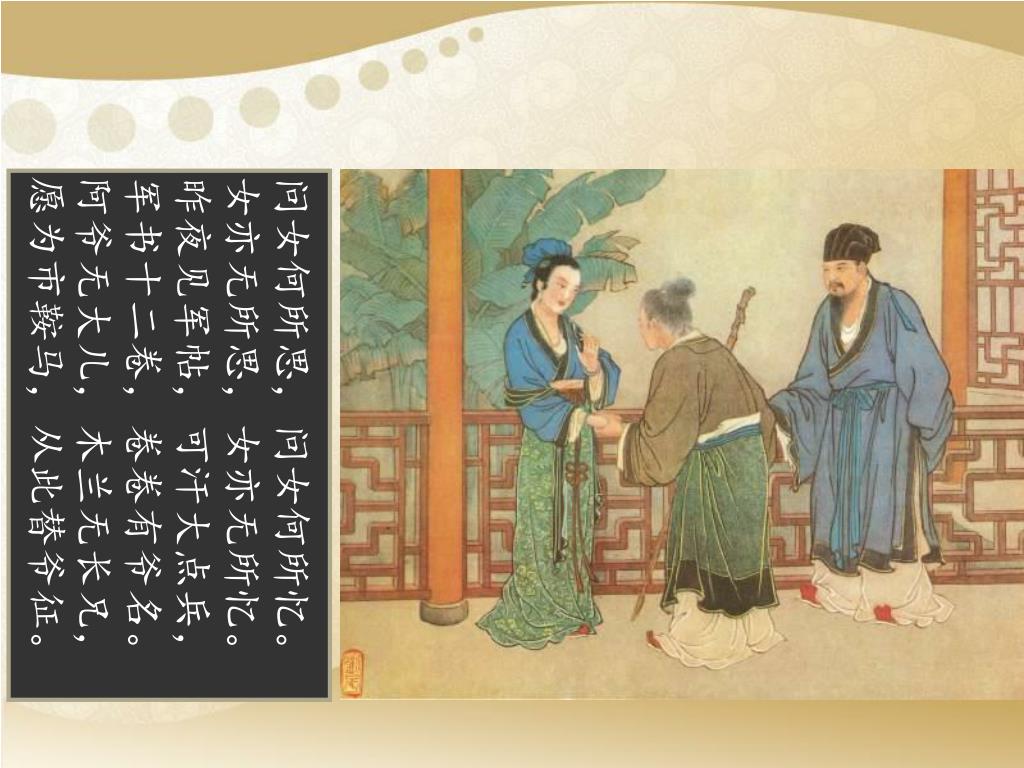 问女何所思，问女何所忆。
女亦无所思，女亦无所忆。
昨夜见军帖，可汗大点兵，
军书十二卷，卷卷有爷名。
阿爷无大儿，木兰无长兄，
愿为市鞍马，从此替爷征。